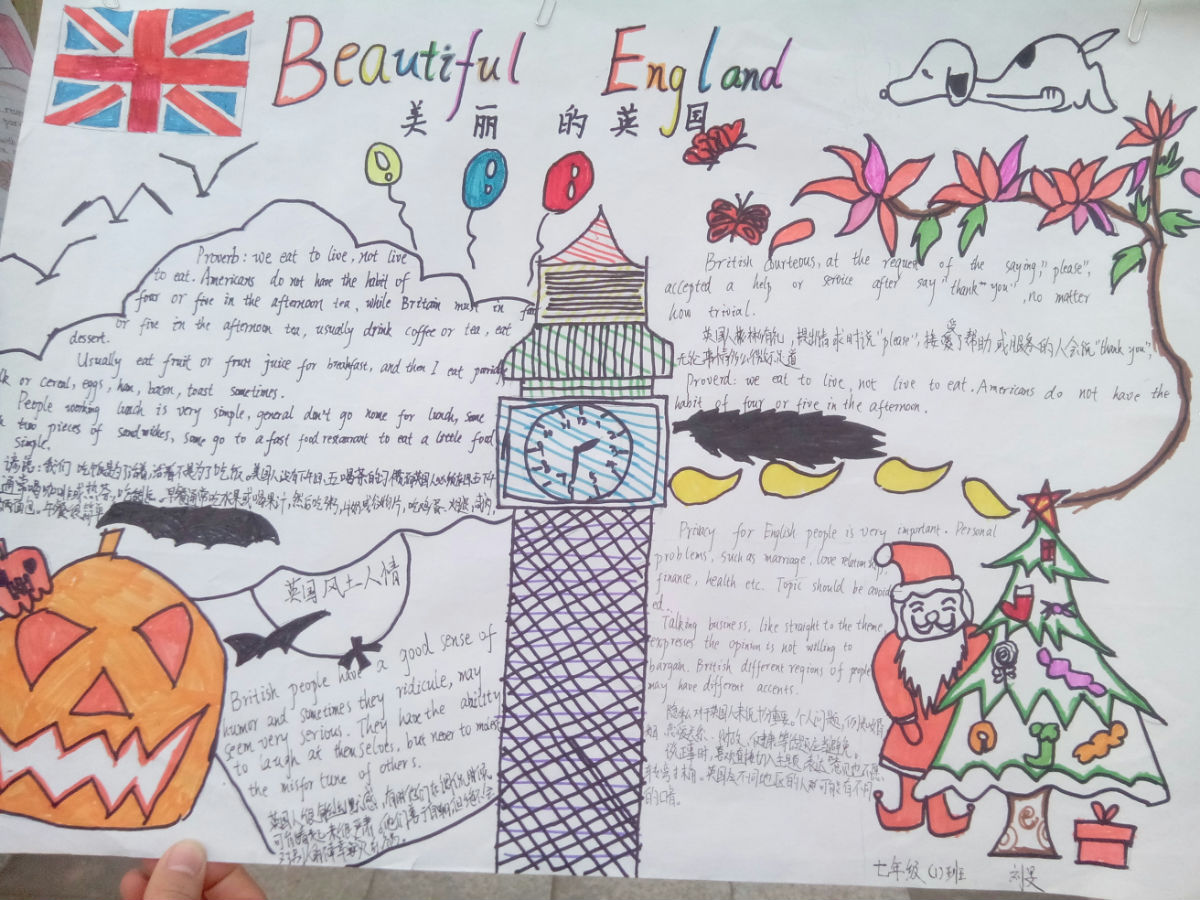 Beautiful England
美丽的英国
Proverb: we eat to live, not live
to eat. Americans do not have the habit of
four or five in the afternoon tea, while Britain must in four
or five in the afternoon tea, usually drink coffee or tea, eat
dessert.
Usually eat fruit or fruit juice for breakfast, and then I eat porridge,
or cereal, eggs, ham, bacon, toast sometimes.
People working lunch is very simple, general don't go home for lunch, some
two pieces of sandwiches, some go to a fast food restaurant to eat a little food
simple.
谚语:我们吃饭是为了活着,活着不是为了吃饭。美国人没有下午四、五喝茶的习惯
British courteous, at the request of the saying;"please",
accepted a help or service after say "thank you", no matter
how trivial.
英国人彬彬有礼,提出请求时说"please",接受了帮助或服务的人会说"thank you",
无论事情多么微不足道
Proverd: we eat to live, not live to eat. Americans do not have the
habit of four or five in the afternoon.
英国风土人情
British people have a good sense of
humor and sometimes they ridicule, may
seem very serious. They have the ability
to laugh at themselves, but never to
the misfortune of others.
英国人很幽默感,有时他们
Privacy for English people is very important. Personal
problems, such as marriage, love relationship,
finance, health etc. Topic should be avoid-
ed.
Talking business, like straight to the theme,
expreses the opinion is not willing to
bargain. British different regions of people
may have different accents.
隐私对于英国人来说十分重要。个人问题,例如婚
姻、恋爱关系、财政、健康等话题应当避免。
谈正事时,喜欢直接切入主题,表达意见也不愿
英国不同地区的人可能有不同
的口音。
七年级(1)班